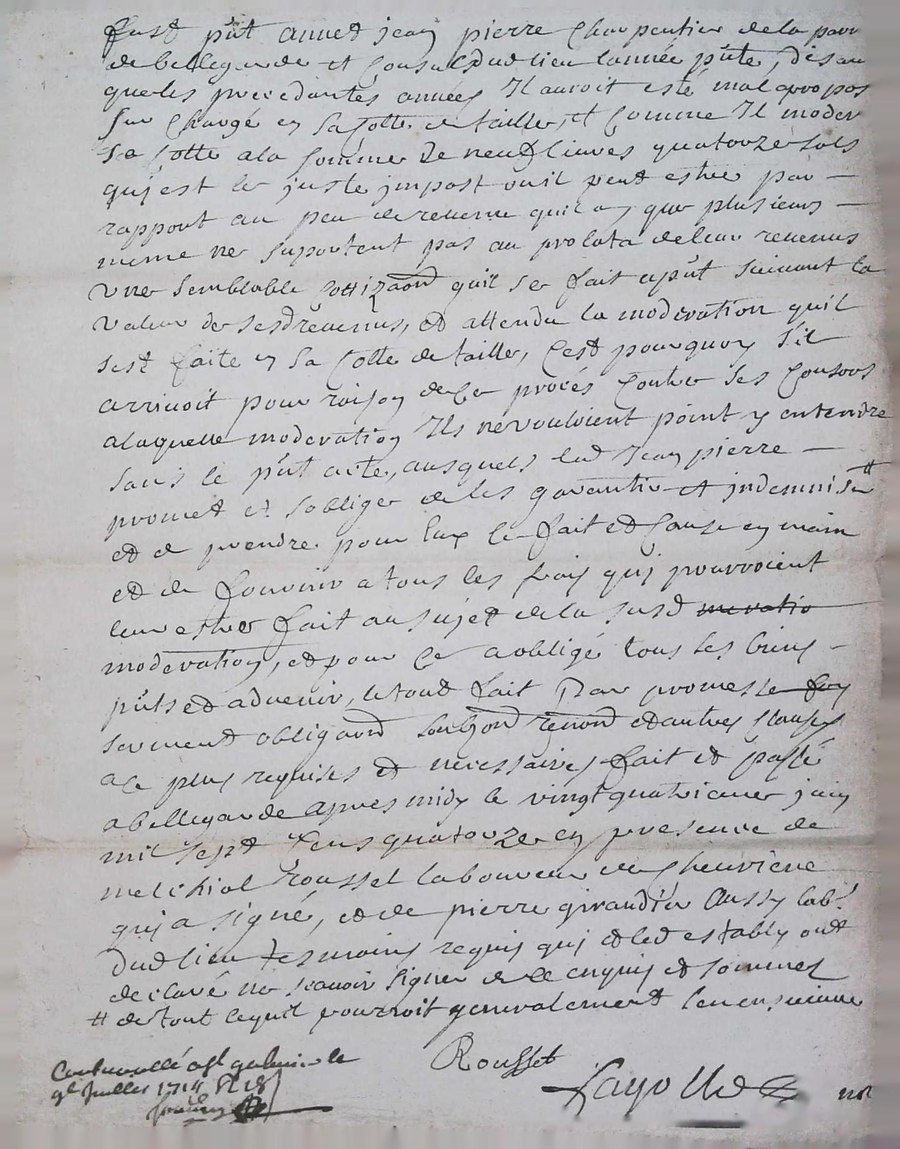 fust pnt annet jean pierre charpentier de la parr
de bellegarde et consul dud lieu lannée pnte, disan
que les precedantes années Il auroit esté mal apropos
sur chargé en sa cotte de taille, et comme Il moder
sa cotte a la somme de neuf livres quatorze sols
qui est le juste impost ouil peut estre par
rapport au peu de revenu quil a que plusieurs
meme ne suportent pas au prolata de leur revenus
une semblable cottizaon quil se fait apnt suivant la
valeur de sesd revenus, et attendu la moderation quil
sest faite en sa cotte de taille, cest pourquoy sil
arrivoit pour raison de ce procés contre ses consors
a laquelle moderation Ils ne vouloient point y entendre
sans le pnt acte, ausquels led Jean pierre
promet et soblige de les garantir et indemniser #
et de prendre pour eux le fait et cause en main
et de fournir a tous les frais qui pourroient
leur estre fait au sujet de la susd
moderation, et pour ce a obligé tous ses biens
pnts et advenir, le tout fait Par promesse
serment obligaon renon et autres clauses
a ce plus requises et necessaires fait et passé
a bellegarde apres midy le vingt quatrieme juin
mil sept cens quatorze en presence de
melchiol rousset laboureur de
qui a signé, et de pierre girandier Aussy lab.r
dud lieu tesmoins requis qui et led estably ont
declaré ne scavoir signer de ce enquis et sommes
# de tout ce quil pourroit generalement
Rousset
Controollé
9e Juillet 1714